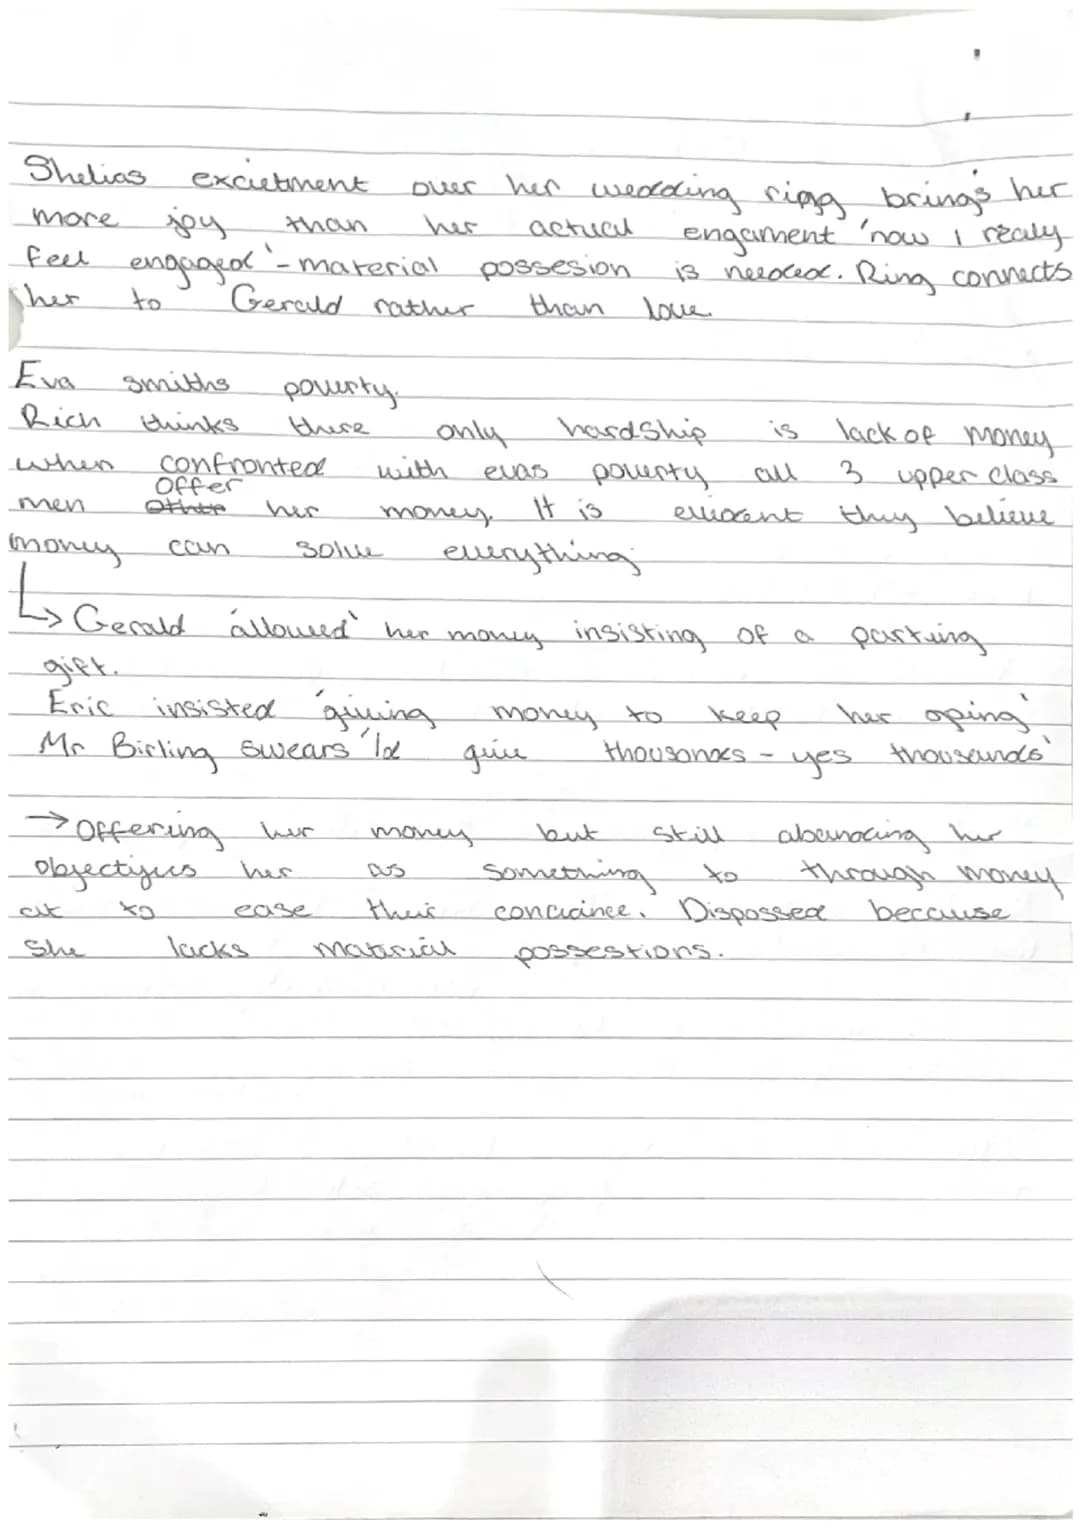 Shelias excietment over her wedding ring bring's her
more joy than her actual engament 'now I realy
feel engaged' - material possesion is needed. Ring connects
her to Gerald rather than love.
Eva smiths poverty.
Rich thinks there only hardship is lack of money
when confronted with evas poverty all 3 upper class
men offer her money. It is evident they believe
money can solve everything.
↳ Gerald 'allowed' her money insisting of a parting
gift.
Eric insisted 'giving money to keep her going'
Mr Birling swears 'Id give thousands - yes thousands'
→ Offering her money but still abanding her
objectifies her as something to through money
at to ease their concicince. Dispossed because
she lacks matarial possestions.